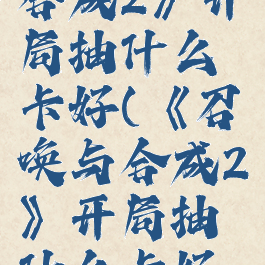 合成2》开
局抽什么
卡好(《召
唤与合成2
》开局抽
什么卡好